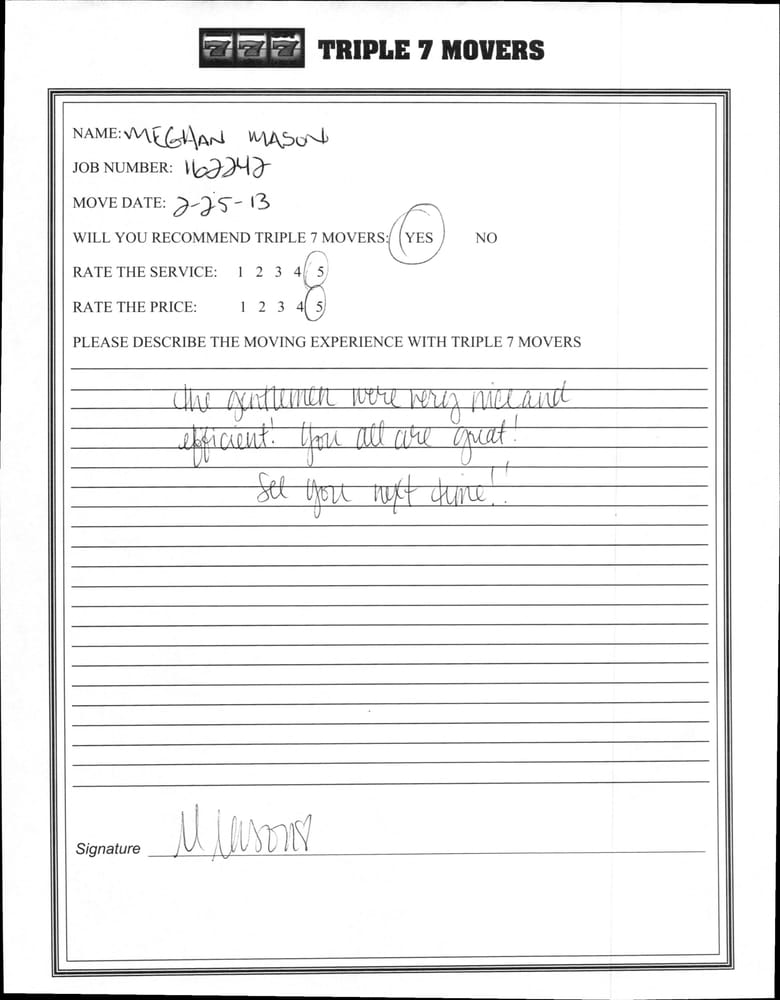 777 TRIPLE 7 MOVERS
NAME: MEGHAN MASON
JOB NUMBER: 162242
MOVE DATE: 2-25-13
WILL YOU RECOMMEND TRIPLE 7 MOVERS: YES NO
RATE THE SERVICE: 1 2 3 4 5
RATE THE PRICE: 1 2 3 4 5
PLEASE DESCRIBE THE MOVING EXPERIENCE WITH TRIPLE 7 MOVERS
The gentlemen were very nice and
efficient! You all are great!
See you next time!!
Signature M Mason